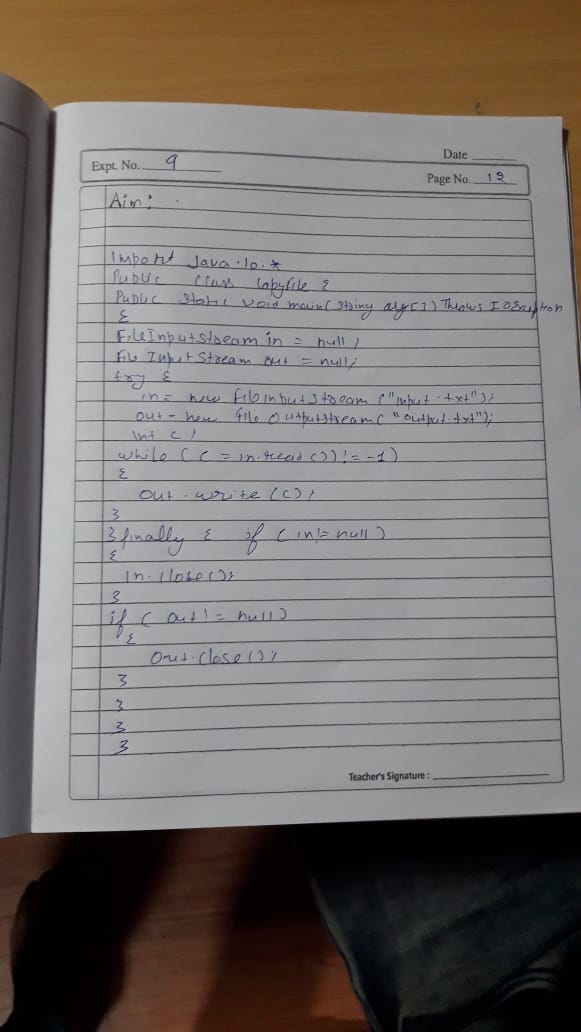 Date
Expt. No. 9
Page No. 12
Aim:
Import Java.Io.*
Public Class Copyfile {
Public Static Void main( String arg[]) Throws IOException
{
FileInputstream in = null;
File Input Stream out = null;
try {
in = new fileinputstream ("input.txt");
out = new file Outputstream( "output.txt");
Int c;
while ((c = in.read())!= -1)
{
out.write(c);
}
} finally { if ( in!= null )
{
In.close();
}
if ( out!= null)
{
Out.close();
}
}
}
}
Teacher's Signature :